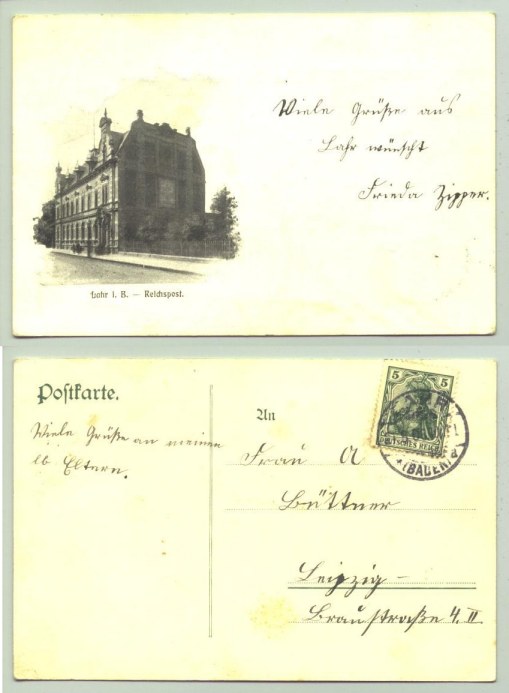 Viele Grüße aus
Lahr wünscht
Frieda Zipper.
Lahr i. B. — Reichspost.
Postkarte.
An
Viele Grüße an meinen
lb Eltern.
Frau A
Büttner
Leipzig
Braustraße 4. II
5 5
DEUTSCHES REICH
(BADEN)